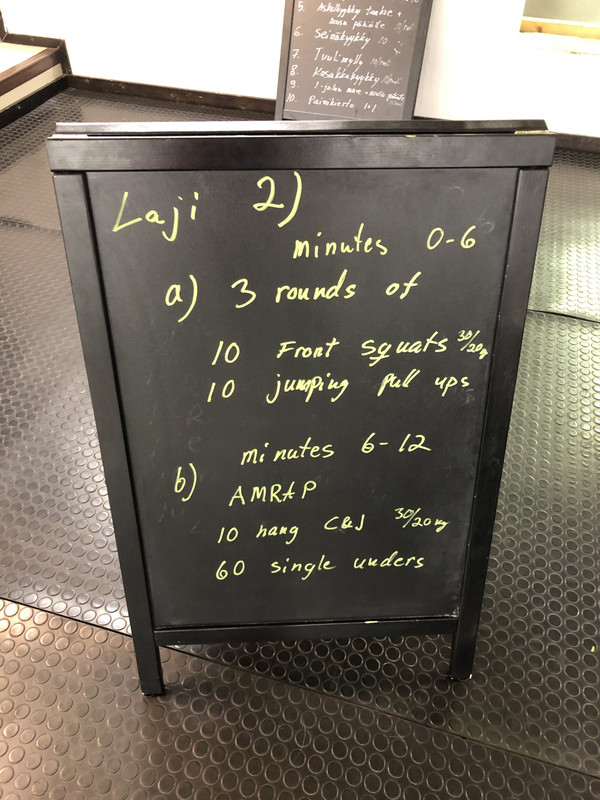 5. Askelkyykky
6. Seinäkyykky 10
7. Tuulimylly
8. Kasakkakyykky
9. 1-jalan
10. Parikierto 10+1
Laji 2)
minutes 0-6
a) 3 rounds of
10 Front squats 30/20kg
10 jumping pull ups
minutes 6-12
b) AMRAP
10 hang C&J 30/20 kg
60 single unders